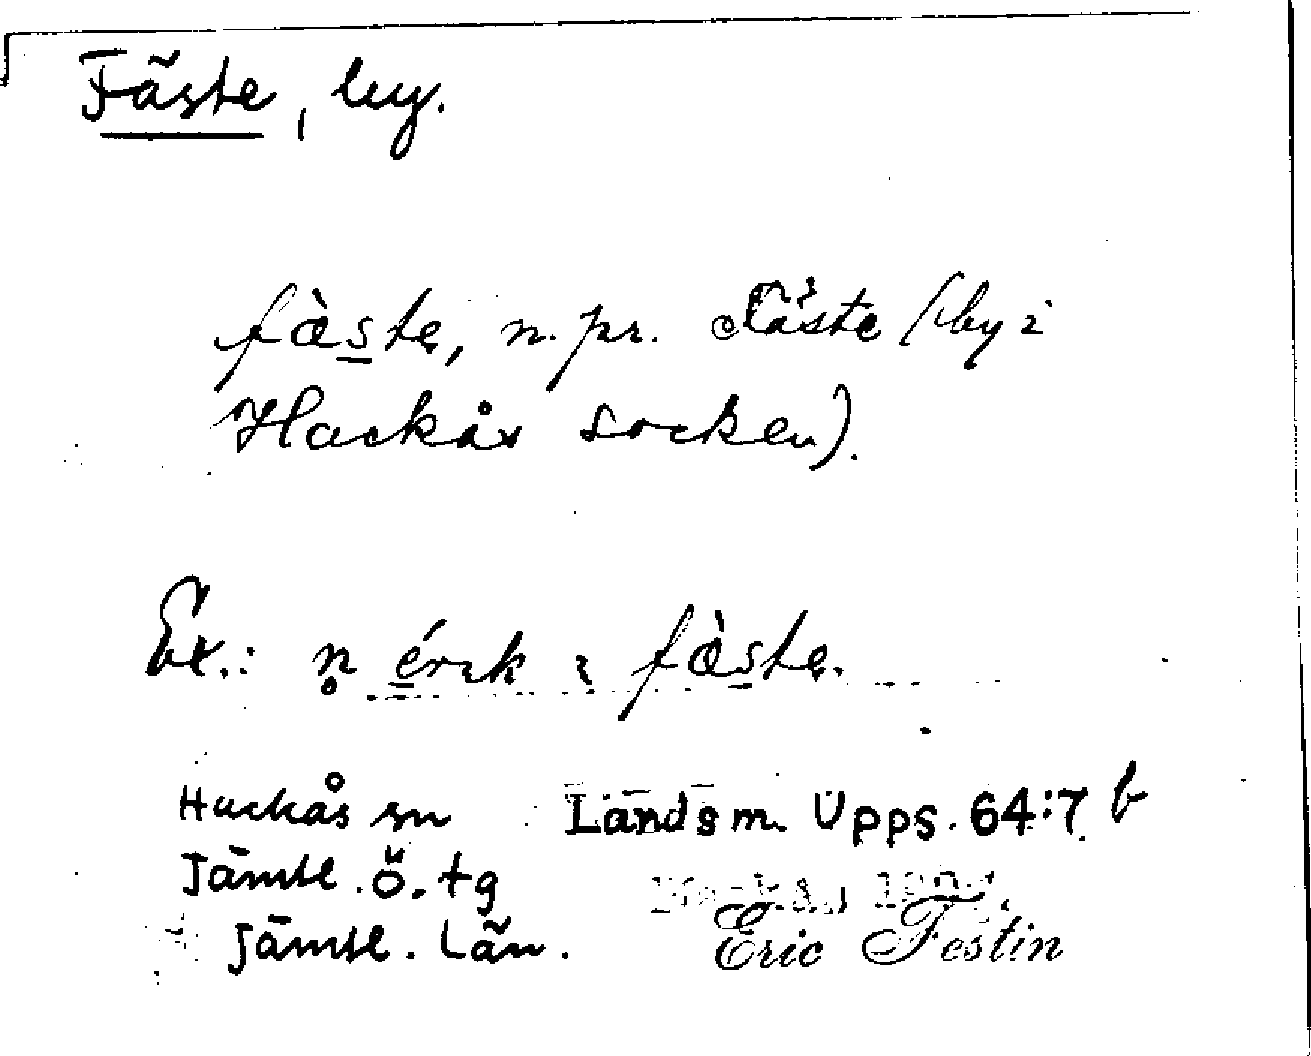 Fäste, by.
fàste, n. pr. Fäste (by i
Hackås socken).
Ex.: n̥ érik i fàste.
Hackås sn Landsm. Upps. 64:7 b
Jämtl. ö. tg
Jämtl. Län. Eric Festin